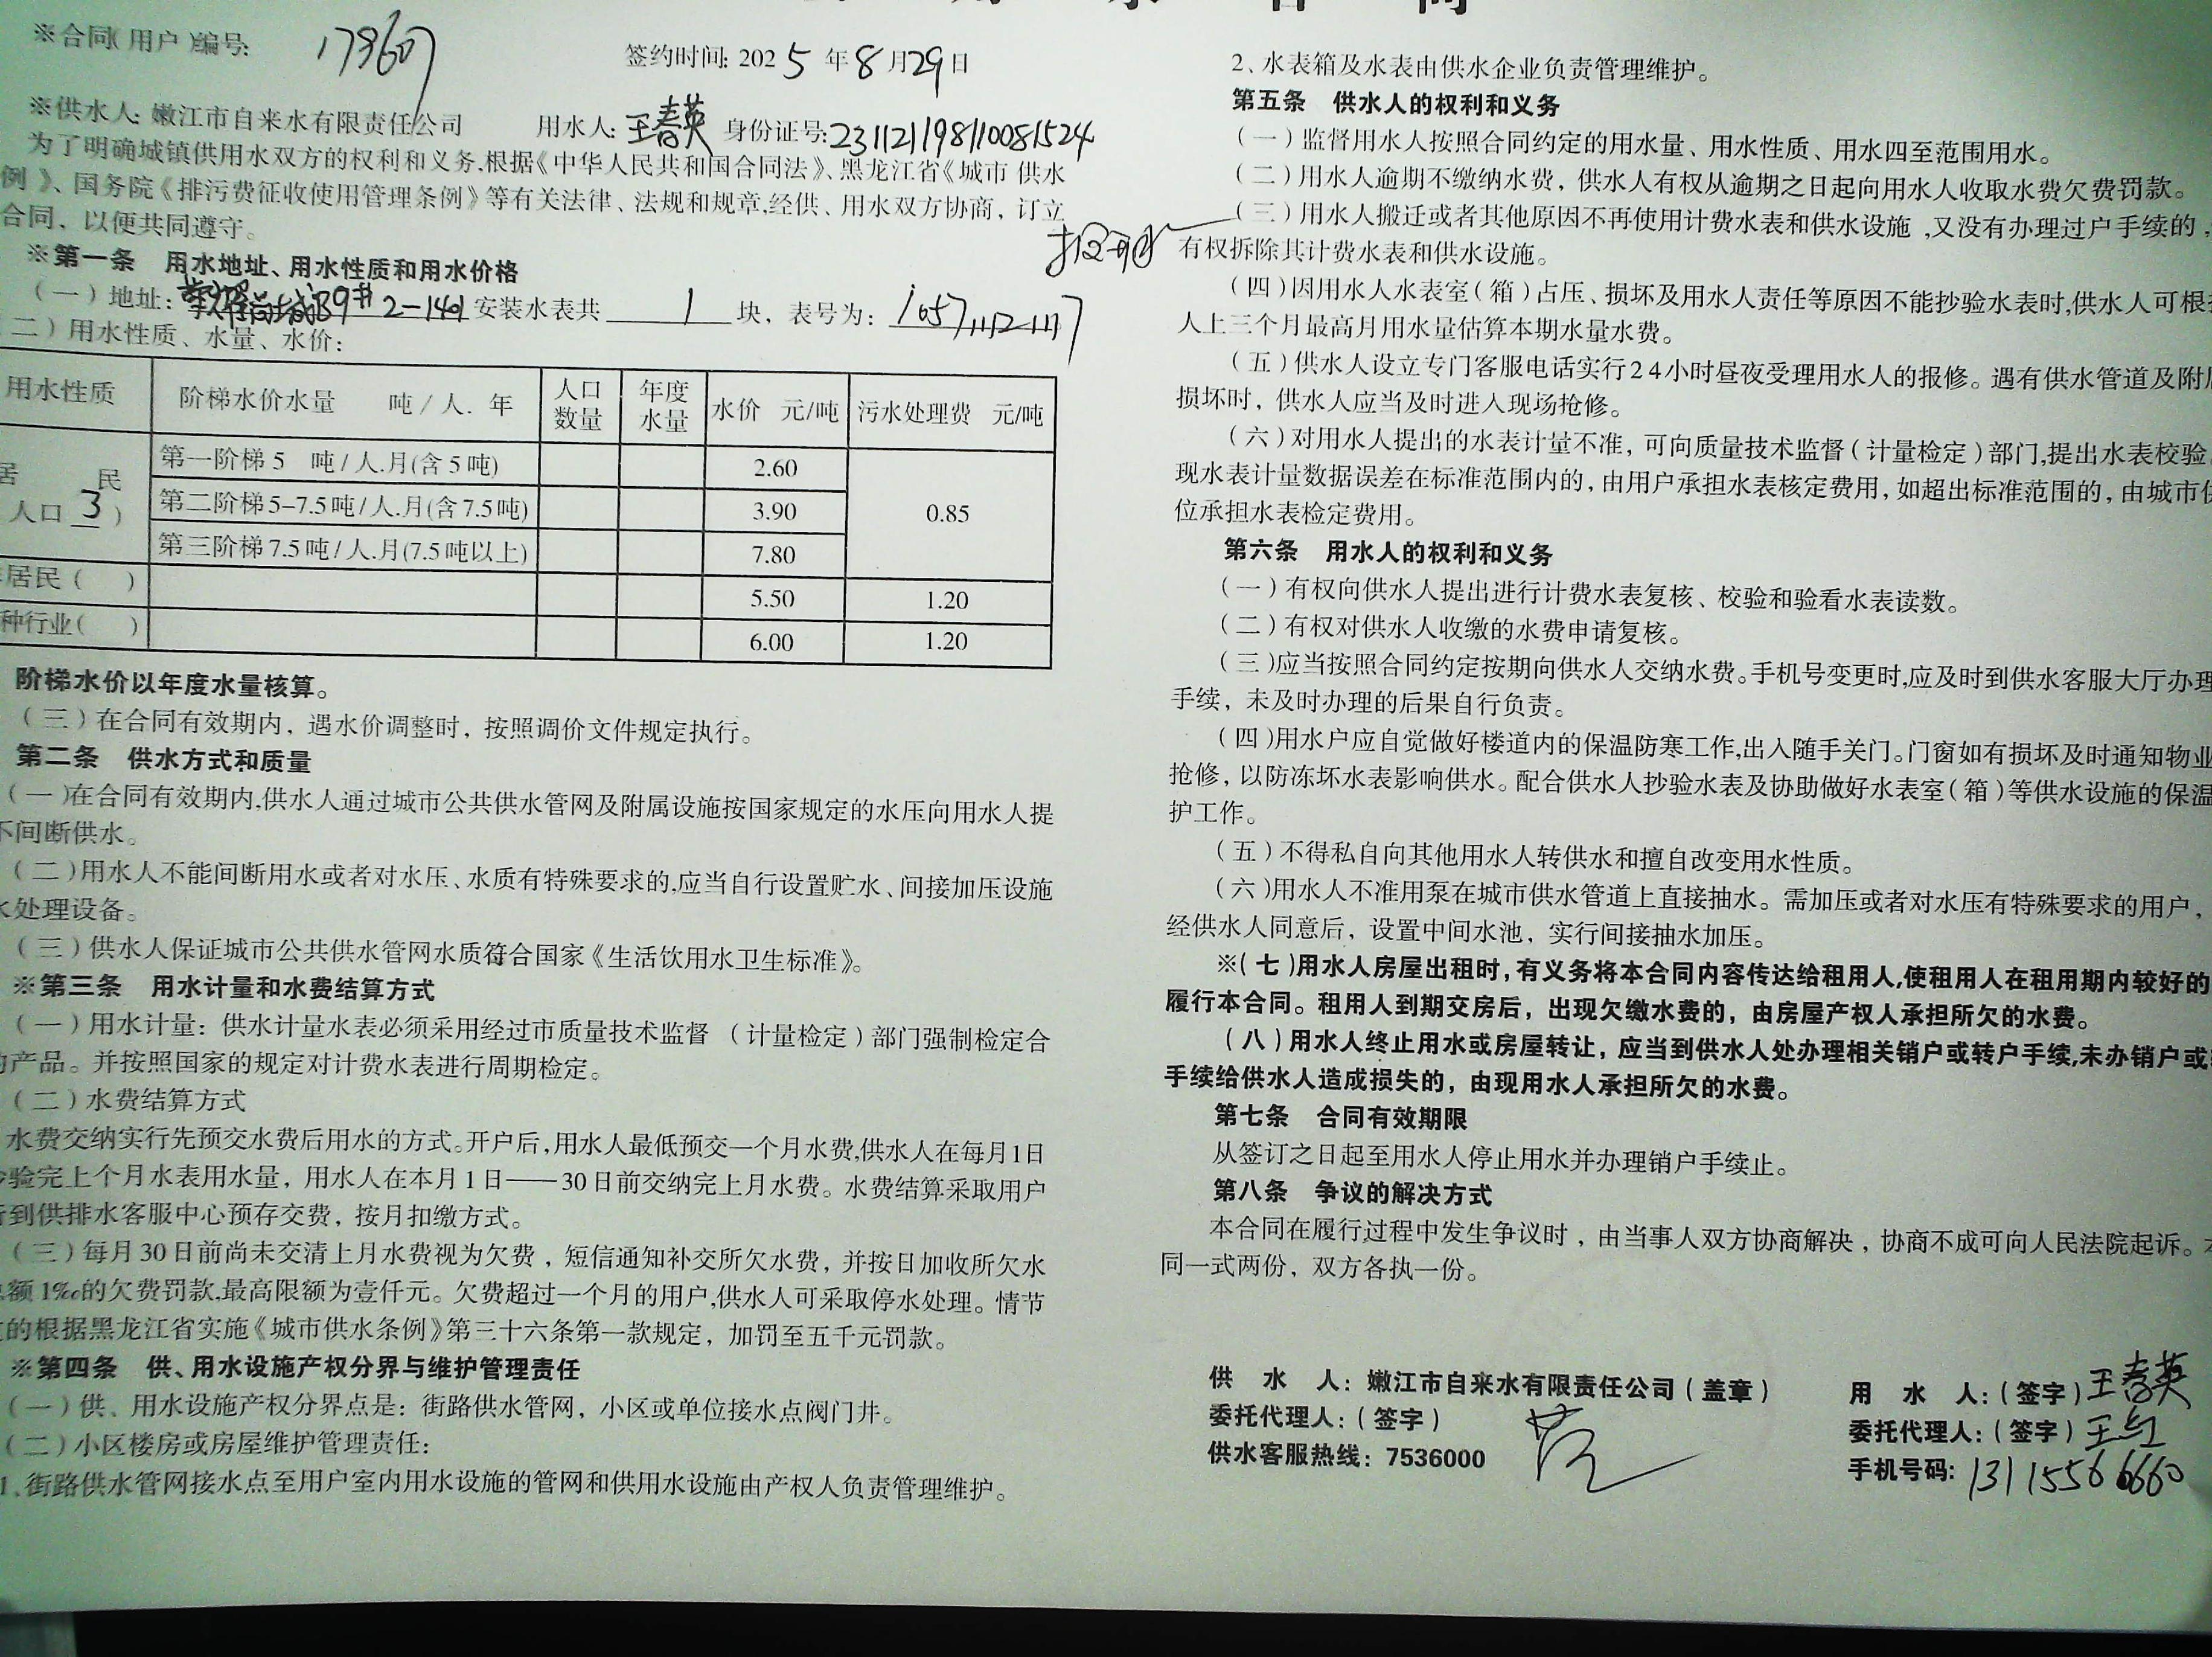 ※合同(用户)编号: 179607
签约时间: 2025年8月29日
※供水人: 嫩江市自来水有限责任公司 用水人: 王春英 身份证号: 231121198110081524
为了明确城镇供用水双方的权利和义务,根据《中华人民共和国合同法》、黑龙江省《城市 供水
例》、国务院《排污费征收使用管理条例》等有关法律、法规和规章,经供、用水双方协商，订立
合同，以便共同遵守。
※第一条 用水地址、用水性质和用水价格
(一)地址: 尚城B9# 2-1401 安装水表共 1 块，表号为:
二)用水性质、水量、水价:
用水性质 阶梯水价水量 吨/人. 年 人口数量 年度水量 水价 元/吨 污水处理费 元/吨
居 民
人口 3 )
第一阶梯 5 吨/人.月(含5吨) 2.60
第二阶梯5-7.5吨/人.月(含7.5吨) 3.90 0.85
第三阶梯7.5吨/人.月(7.5吨以上) 7.80
居民( ) 5.50 1.20
种行业( ) 6.00 1.20
阶梯水价以年度水量核算。
(三)在合同有效期内，遇水价调整时，按照调价文件规定执行。
第二条 供水方式和质量
(一)在合同有效期内,供水人通过城市公共供水管网及附属设施按国家规定的水压向用水人提
不间断供水。
(二)用水人不能间断用水或者对水压、水质有特殊要求的,应当自行设置贮水、间接加压设施
水处理设备。
(三)供水人保证城市公共供水管网水质符合国家《生活饮用水卫生标准》。
※第三条 用水计量和水费结算方式
(一)用水计量: 供水计量水表必须采用经过市质量技术监督 (计量检定)部门强制检定合
的产品。并按照国家的规定对计费水表进行周期检定。
(二)水费结算方式
水费交纳实行先预交水费后用水的方式。开户后,用水人最低预交一个月水费,供水人在每月1日
验完上个月水表用水量，用水人在本月1日——30日前交纳完上月水费。水费结算采取用户
到供排水客服中心预存交费，按月扣缴方式。
(三)每月30日前尚未交清上月水费视为欠费，短信通知补交所欠水费，并按日加收所欠水
额1‰的欠费罚款,最高限额为壹仟元。欠费超过一个月的用户,供水人可采取停水处理。情节
的根据黑龙江省实施《城市供水条例》第三十六条第一款规定，加罚至五千元罚款。
※第四条 供、用水设施产权分界与维护管理责任
(一)供、用水设施产权分界点是: 街路供水管网，小区或单位接水点阀门井。
(二)小区楼房或房屋维护管理责任:
1、街路供水管网接水点至用户室内用水设施的管网和供用水设施由产权人负责管理维护。
2、水表箱及水表由供水企业负责管理维护。
第五条 供水人的权利和义务
(一)监督用水人按照合同约定的用水量、用水性质、用水四至范围用水。
(二)用水人逾期不缴纳水费，供水人有权从逾期之日起向用水人收取水费欠费罚款。
(三)用水人搬迁或者其他原因不再使用计费水表和供水设施，又没有办理过户手续的，
有权拆除其计费水表和供水设施。
(四)因用水人水表室(箱)占压、损坏及用水人责任等原因不能抄验水表时,供水人可根
人上三个月最高月用水量估算本期水量水费。
(五)供水人设立专门客服电话实行24小时昼夜受理用水人的报修。遇有供水管道及附
损坏时，供水人应当及时进入现场抢修。
(六)对用水人提出的水表计量不准，可向质量技术监督(计量检定)部门,提出水表校验
现水表计量数据误差在标准范围内的，由用户承担水表核定费用，如超出标准范围的，由城市
位承担水表检定费用。
第六条 用水人的权利和义务
(一)有权向供水人提出进行计费水表复核、校验和验看水表读数。
(二)有权对供水人收缴的水费申请复核。
(三)应当按照合同约定按期向供水人交纳水费。手机号变更时,应及时到供水客服大厅办理
手续，未及时办理的后果自行负责。
(四)用水户应自觉做好楼道内的保温防寒工作,出入随手关门。门窗如有损坏及时通知物业
抢修，以防冻坏水表影响供水。配合供水人抄验水表及协助做好水表室(箱)等供水设施的保温
护工作。
(五)不得私自向其他用水人转供水和擅自改变用水性质。
(六)用水人不准用泵在城市供水管道上直接抽水。需加压或者对水压有特殊要求的用户，
经供水人同意后，设置中间水池，实行间接抽水加压。
※(七)用水人房屋出租时,有义务将本合同内容传达给租用人,使租用人在租用期内较好的
履行本合同。租用人到期交房后，出现欠缴水费的，由房屋产权人承担所欠的水费。
(八)用水人终止用水或房屋转让，应当到供水人处办理相关销户或转户手续,未办销户或
手续给供水人造成损失的，由现用水人承担所欠的水费。
第七条 合同有效期限
从签订之日起至用水人停止用水并办理销户手续止。
第八条 争议的解决方式
本合同在履行过程中发生争议时，由当事人双方协商解决，协商不成可向人民法院起诉。
同一式两份，双方各执一份。
供 水 人: 嫩江市自来水有限责任公司(盖章)
委托代理人: (签字)
供水客服热线: 7536000
用 水 人: (签字) 王春英
委托代理人: (签字)
手机号码: 13115566660